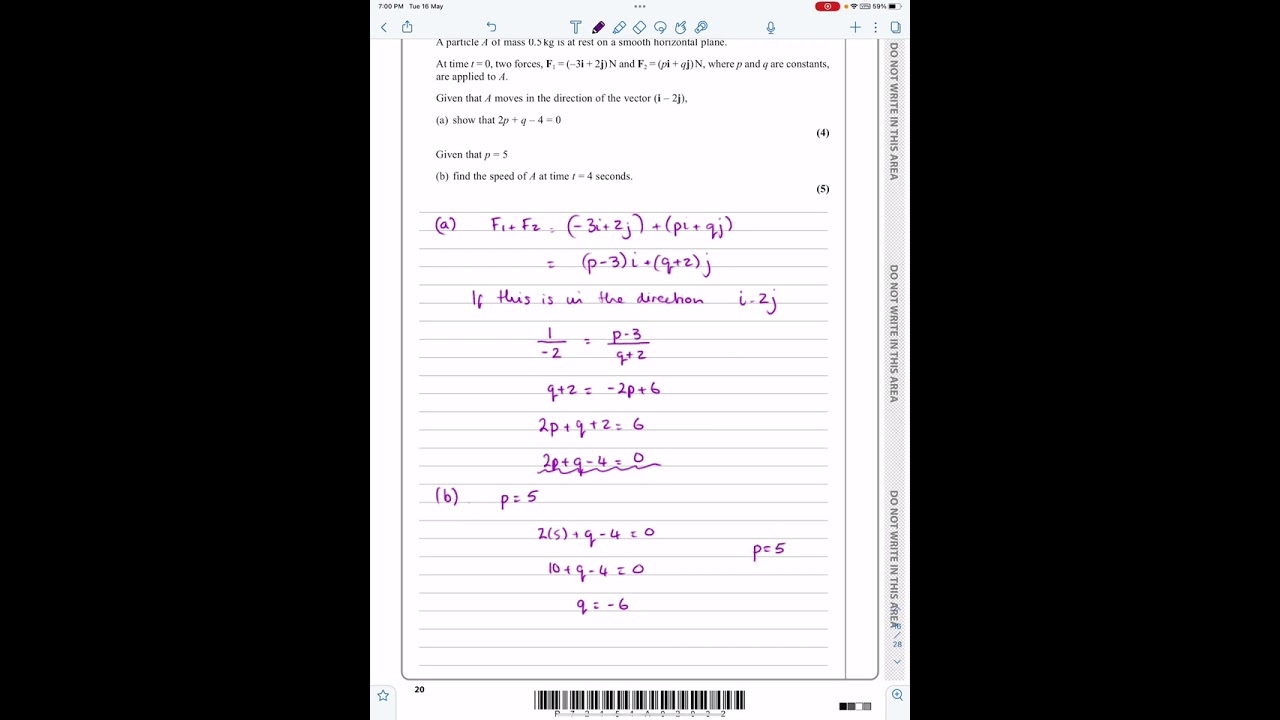 7:00 PM Tue 16 May
VPN 59%
A particle A of mass 0.5 kg is at rest on a smooth horizontal plane.
At time t = 0, two forces, F₁ = (–3i + 2j) N and F₂ = (pi + qj) N, where p and q are constants,
are applied to A.
Given that A moves in the direction of the vector (i – 2j),
(a) show that 2p + q – 4 = 0
(4)
Given that p = 5
(b) find the speed of A at time t = 4 seconds.
(5)
(a) F₁ + F₂ = (-3i+2j) + (pi + qj)
= (p-3)i + (q+2)j
If this is in the direction i-2j
1/-2 = p-3/q+2
q+2 = -2p+6
2p+q+2 = 6
2p+q-4 = 0
(b) p = 5
2(5)+q-4 = 0
p=5
10+q-4=0
q = -6
DO NOT WRITE IN THIS AREA
DO NOT WRITE IN THIS AREA
DO NOT WRITE IN THIS AREA
/
28
20